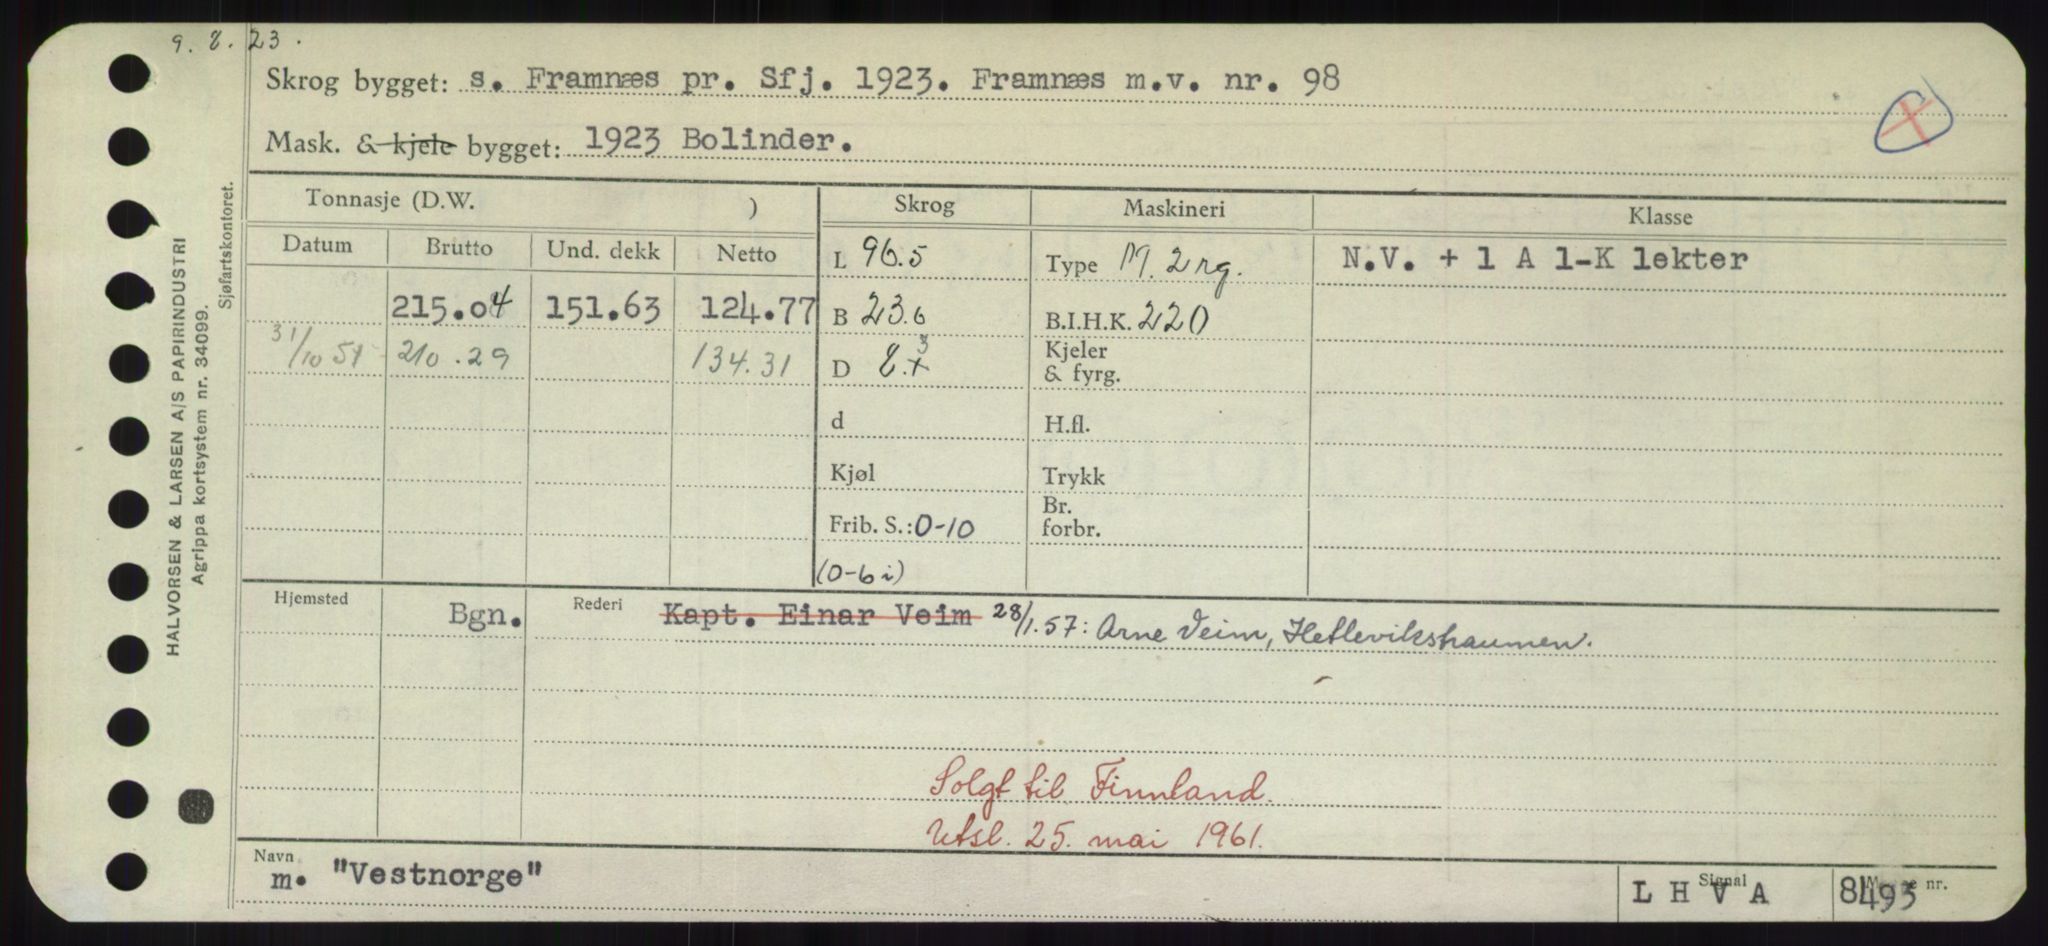 9. 8. 23.
Skrog bygget: s. Framnæs pr. Sfj. 1923. Framnæs m.v. nr. 98
Mask. & kjele bygget: 1923 Bolinder.
Tonnasje (D.W. )
Skrog
Maskineri
Klasse
Datum Brutto Und. dekk Netto
L 96.5
Type M. 2 rg.
N.V. + 1 A 1-K lekter
215.04 151.63 124.77
B 23.6
B.I.H.K. 220
31/10 51 210.29 134.31
D 8.3
Kjeler
& fyrg.
d
H.fl.
Kjøl
Trykk
Frib. S.: 0-10
Br.
forbr.
(0-6 i)
Hjemsted Bgn. Rederi Kapt. Einar Veim 28/1.57: Arne Veim, Hetlevikstraumen.
Solgt til Finnland.
Utsl. 25. mai 1961.
Navn
m. "Vestnorge"
Signal
L H V A
nr.
8493
HALVORSEN & LARSEN A/S PAPIRINDUSTRI
Agrippa kortsystem nr. 34099.
Sjøfartskontoret.